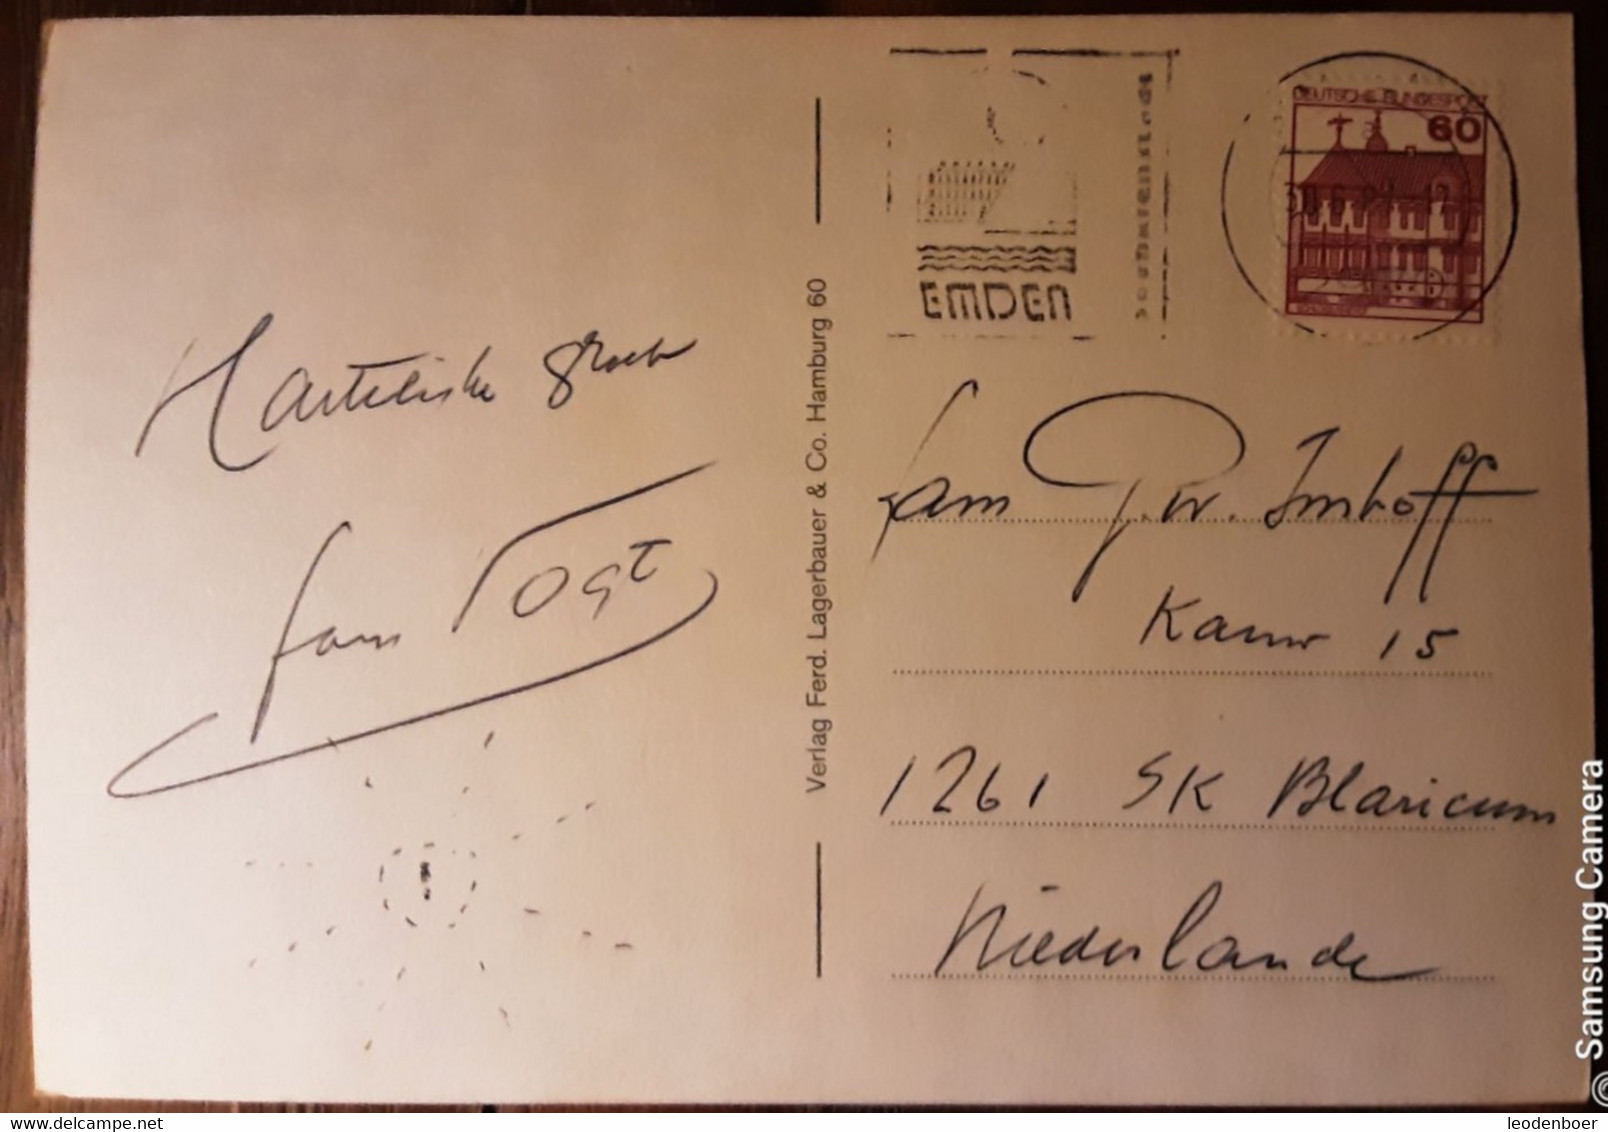 Hartelijke groet
fam Vogt
Verlag Ferd. Lagerbauer & Co. Hamburg 60
EMDEN
DEUTSCHE BUNDESPOST
60
fam P.W. Imhoff
Kamr 15
1261 SK Blaricum
Niederlande
© Samsung Camera
leodenboer